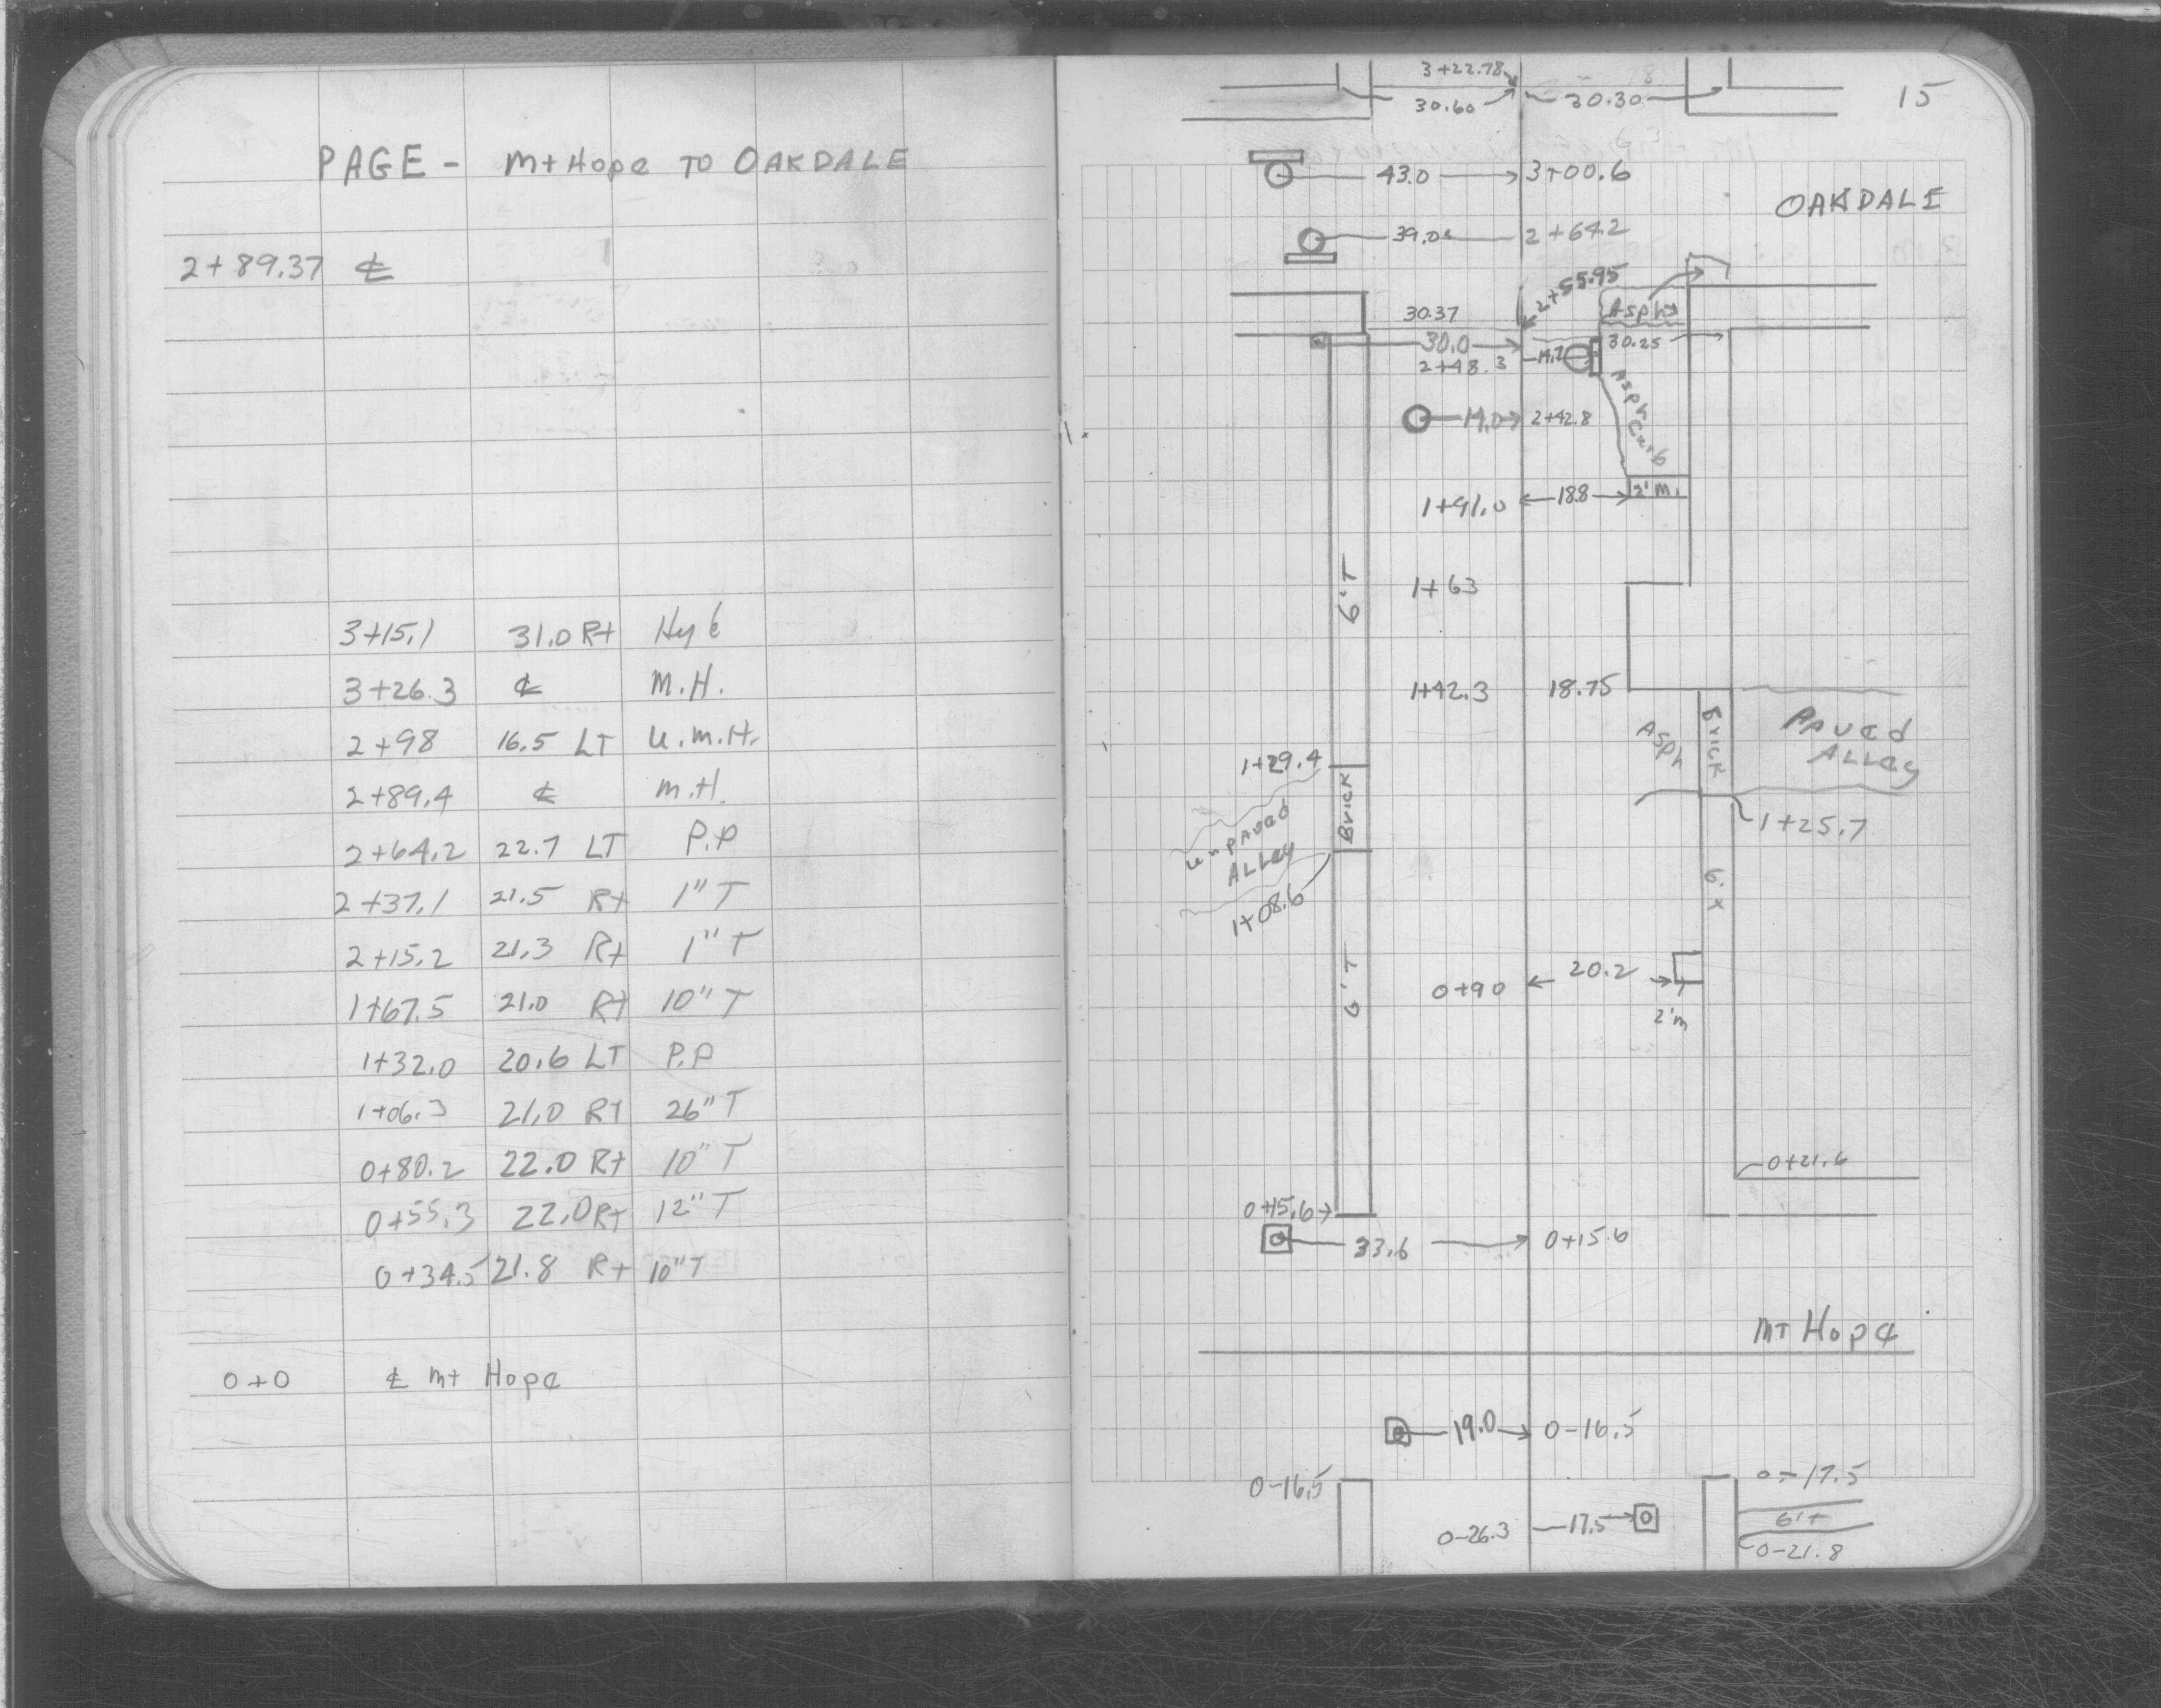 PAGE - Mt Hope TO OAKDALE
2+89.37 ℄
3+15.1 31.0 Rt Hyd
3+26.3 ℄ M.H.
2+98 16.5 LT U.M.H.
2+89.4 ℄ M.H.
2+64.2 22.7 LT P.P
2+37.1 21.5 Rt 1" T
2+15.2 21.3 Rt 1" T
1+67.5 21.0 Rt 10" T
1+32.0 20.6 LT P.P
1+06.3 21.0 RT 26" T
0+80.2 22.0 Rt 10" T
0+55.3 22.0 RT 12" T
0+34.5 21.8 Rt 10" T
0+0 ℄ Mt Hope
3+22.78
30.60 30.30
15
43.0 3+00.6
OAKDALE
39.0 2+64.2
2+55.95
30.37 Asph
30.0 30.25
2+48.3 14.7
Asph Curb
14.0 2+42.8
1+91.0 18.8 2' M.
6' T
1+63
1+42.3 18.75
Asph
Brick
Paved
Alley
1+29.4
Brick
unpaved
Alley
1+25.7
1+08.6
6' T
0+90 20.2
2' m
0+21.6
0+15.6
33.6 0+15.6
MT Hope
19.0 0-16.5
0-16.5
0-17.5
0-26.3 17.5
6' t
0-21.8